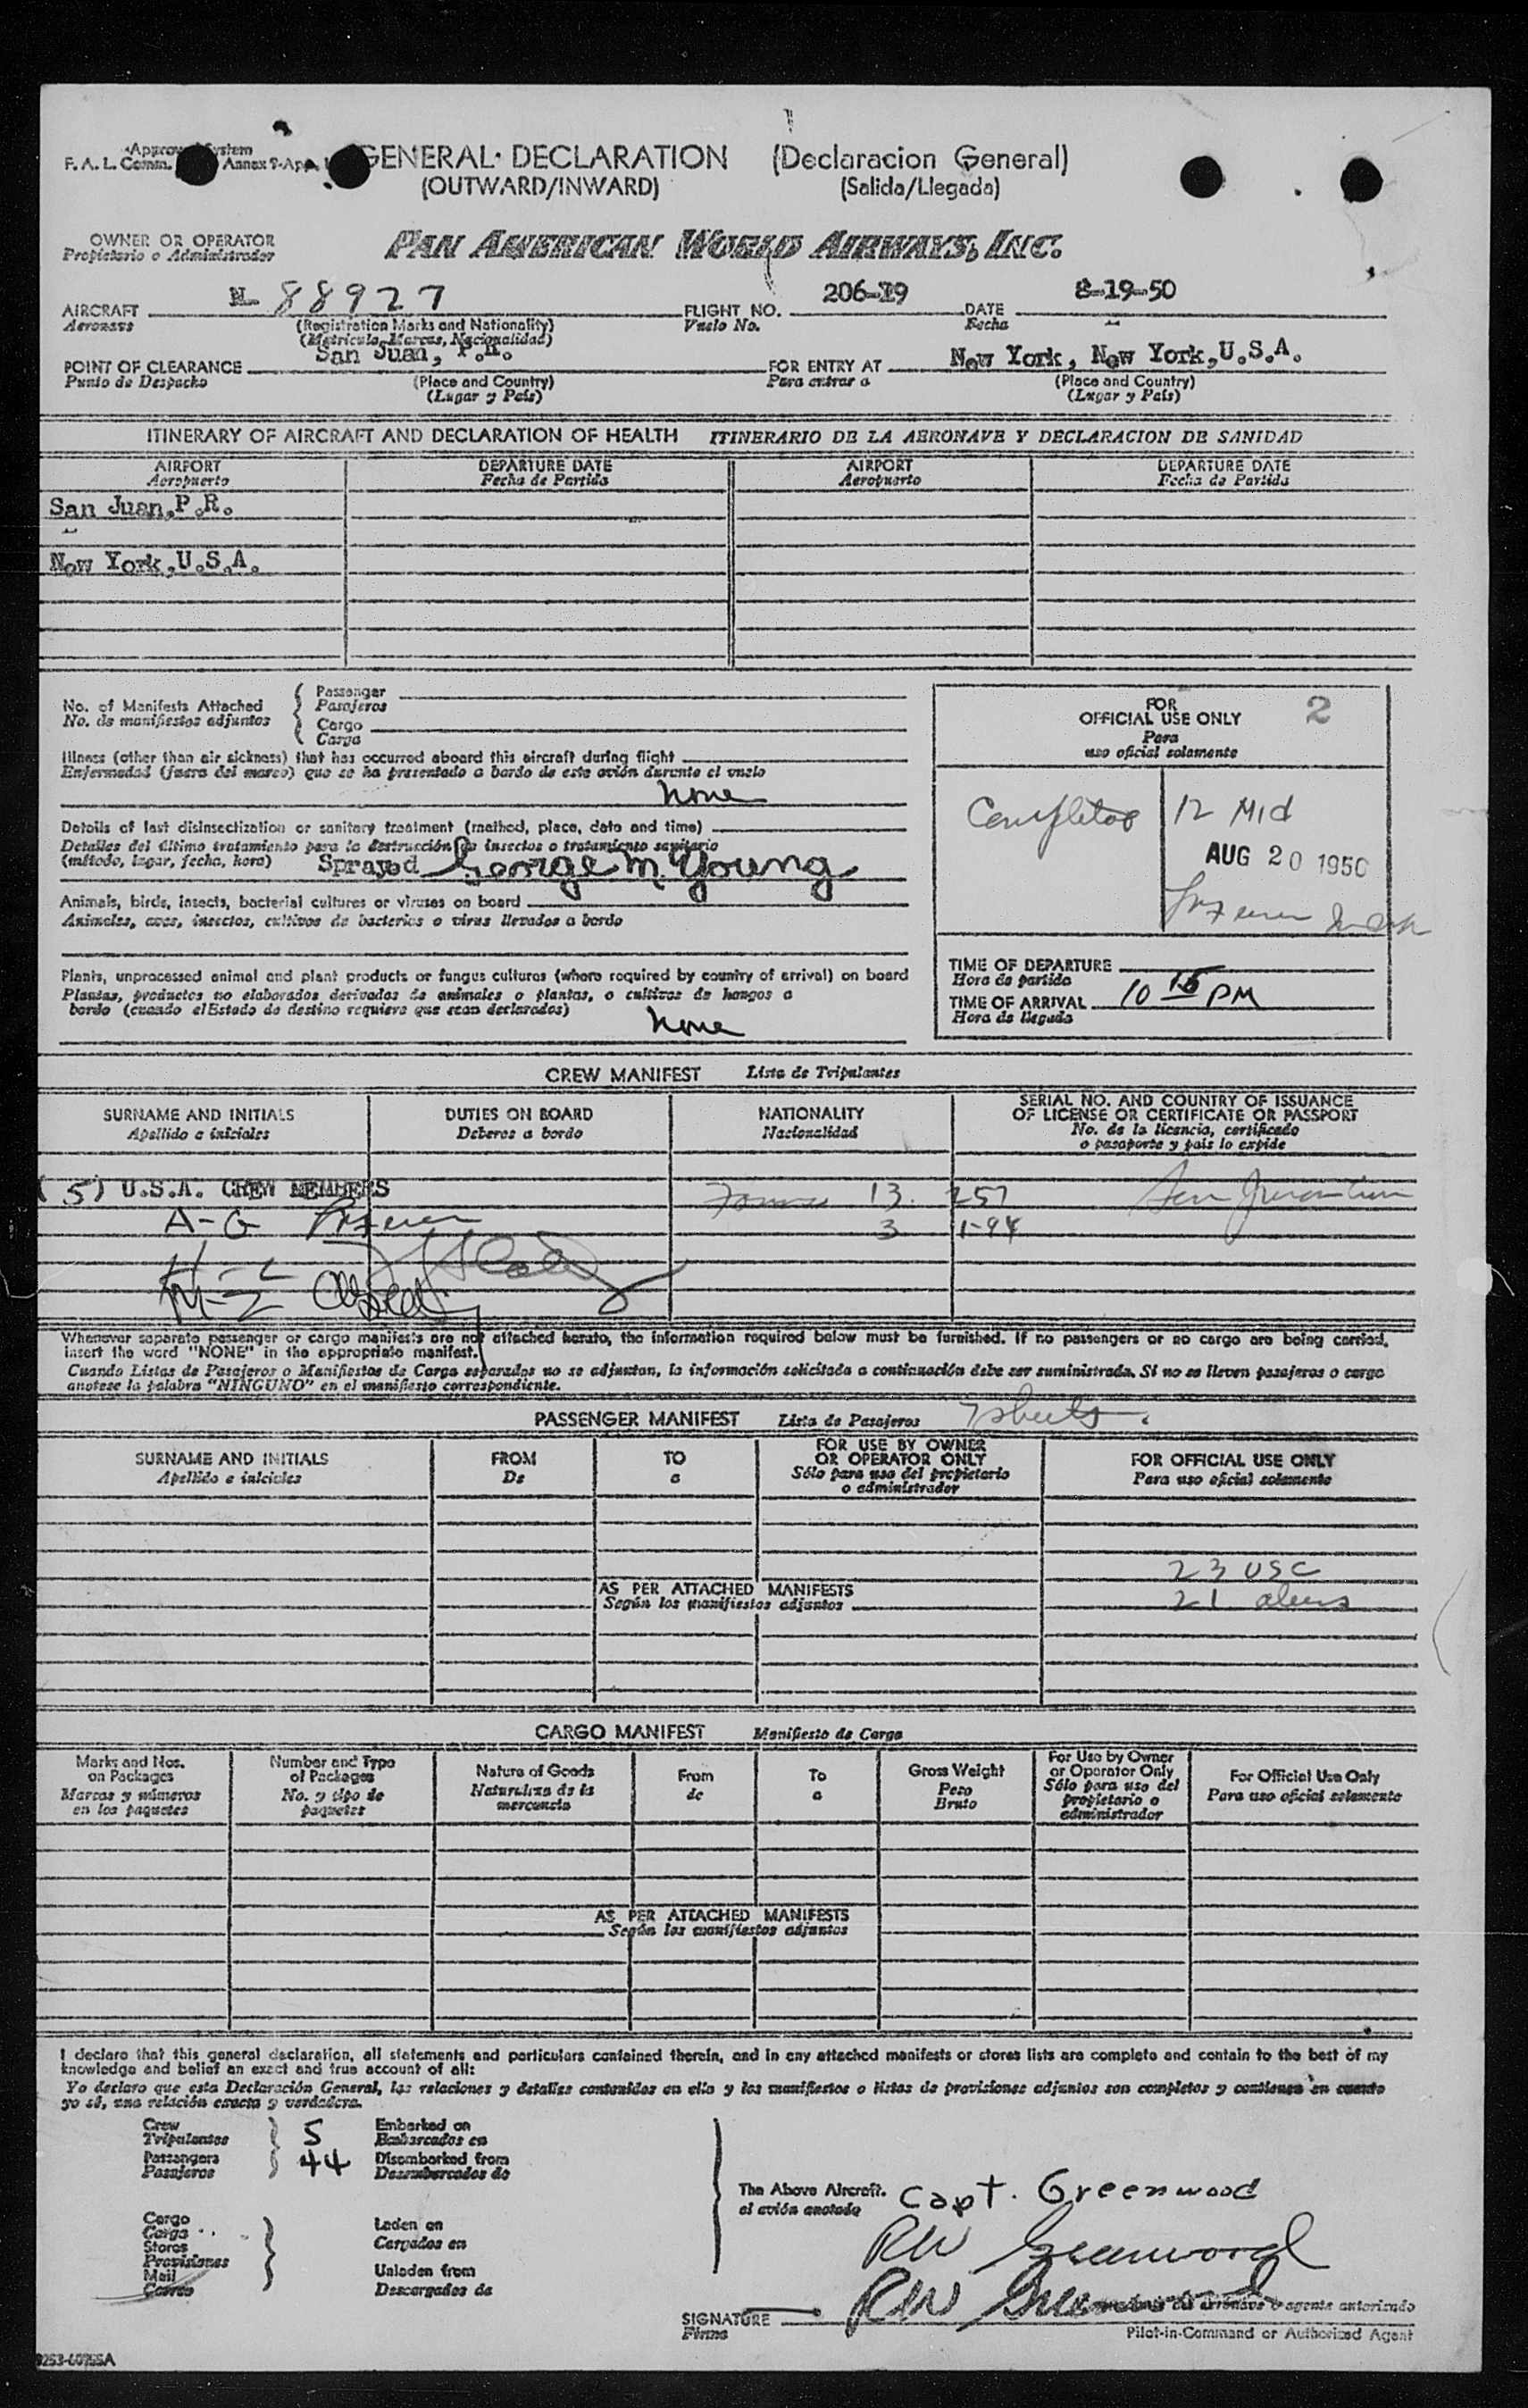 Approved System
F. A. L. Comm. Annex 9-App.
GENERAL DECLARATION (Declaracion General)
(OUTWARD/INWARD) (Salida/Llegada)
OWNER OR OPERATOR
Propietario o Administrador
PAN AMERICAN WORLD AIRWAYS, INC.
AIRCRAFT N-88927 FLIGHT NO. 206-19 DATE 8-19-50
Aeronave (Registration Marks and Nationality) Vuelo No. Fecha
(Matricula, Marcas, Nacionalidad)
POINT OF CLEARANCE San Juan, P.R. FOR ENTRY AT New York, New York, U.S.A.
Punto de Despacho (Place and Country) Para entrar a (Place and Country)
(Lugar y País) (Lugar y País)
ITINERARY OF AIRCRAFT AND DECLARATION OF HEALTH ITINERARIO DE LA AERONAVE Y DECLARACION DE SANIDAD
AIRPORT DEPARTURE DATE AIRPORT DEPARTURE DATE
Aeropuerto Fecha de Partida Aeropuerto Fecha de Partida
San Juan, P.R.
New York, U.S.A.
No. of Manifests Attached
No. de manifiestos adjuntos
Passenger
Pasajeros
Cargo
Carga
FOR
OFFICIAL USE ONLY 2
Para
uso oficial solamente
Illness (other than air sickness) that has occurred aboard this aircraft during flight
Enfermedad (fuera del mareo) que se ha presentado a bordo de este avión durante el vuelo
None
Details of last disinsectization or sanitary treatment (method, place, date and time)
Detalles del último tratamiento para la destrucción de insectos o tratamiento sanitario
(método, lugar, fecha, hora) Sprayed George M. Young
12 Mid
AUG 20 1950
Animals, birds, insects, bacterial cultures or viruses on board
Animales, aves, insectos, cultivos de bacterias o virus llevados a bordo
Plants, unprocessed animal and plant products or fungus cultures (where required by country of arrival) on board
Plantas, productos no elaborados derivados de animales o plantas, o cultivos de hongos a
bordo (cuando el Estado de destino requiera que sean declarados)
None
TIME OF DEPARTURE
Hora de partida
TIME OF ARRIVAL 10 15 PM
Hora de llegada
CREW MANIFEST Lista de Tripulantes
SURNAME AND INITIALS DUTIES ON BOARD NATIONALITY SERIAL NO. AND COUNTRY OF ISSUANCE
OF LICENSE OR CERTIFICATE OR PASSPORT
Apellido e iniciales Deberes a bordo Nacionalidad No. de la licencia, certificado
o pasaporte y país lo expide
(5) U.S.A. CREW MEMBERS 13. 257
A-G 3 1-94
H-L
M-Z
Whenever separate passenger or cargo manifests are not attached hereto, the information required below must be furnished. If no passengers or no cargo are being carried,
insert the word "NONE" in the appropriate manifest.
Cuando Listas de Pasajeros o Manifiestos de Carga separados no se adjuntan, la información solicitada a continuación debe ser suministrada. Si no se lleven pasajeros o carga
anotese la palabra "NINGUNO" en el manifiesto correspondiente.
PASSENGER MANIFEST Lista de Pasajeros 7 sheets.
SURNAME AND INITIALS FROM TO FOR USE BY OWNER
OR OPERATOR ONLY FOR OFFICIAL USE ONLY
Apellido e iniciales De a Sólo para uso del propietario
o administrador Para uso oficial solamente
23 USC
AS PER ATTACHED MANIFESTS
Según los manifiestos adjuntos
21 aliens
CARGO MANIFEST Manifiesto de Carga
Marks and Nos.
on Packages
Marcas y números
en los paquetes
Number and Type
of Packages
No. y tipo de
paquetes
Nature of Goods
Naturaleza de la
mercancia
From
de
To
a
Gross Weight
Peso
Bruto
For Use by Owner
or Operator Only
Sólo para uso del
propietario o
administrador
For Official Use Only
Para uso oficial solamente
AS PER ATTACHED MANIFESTS
Según los manifiestos adjuntos
I declare that this general declaration, all statements and particulars contained therein, and in any attached manifests or stores lists are complete and contain to the best of my
knowledge and belief an exact and true account of all:
Yo declaro que esta Declaración General, las relaciones y detalles contenidos en ella y los manifiestos o listas de provisiones adjuntos son completos y contienen en cuanto
yo sé, una relación exacta y verdadera.
Crew 5 Embarked on
Tripulantes Embarcados en
Passengers 44 Disembarked from
Pasajeros Desembarcados de
The Above Aircraft. Capt. Greenwood
el avión anotado
Cargo
Carga
Stores
Provisiones
Mail
Correo
Laden on
Cargados en
Unladen from
Descargados de
RW Greenwood
SIGNATURE RW Greenwood
Firma
agente autorizado
Pilot-in-Command or Authorized Agent